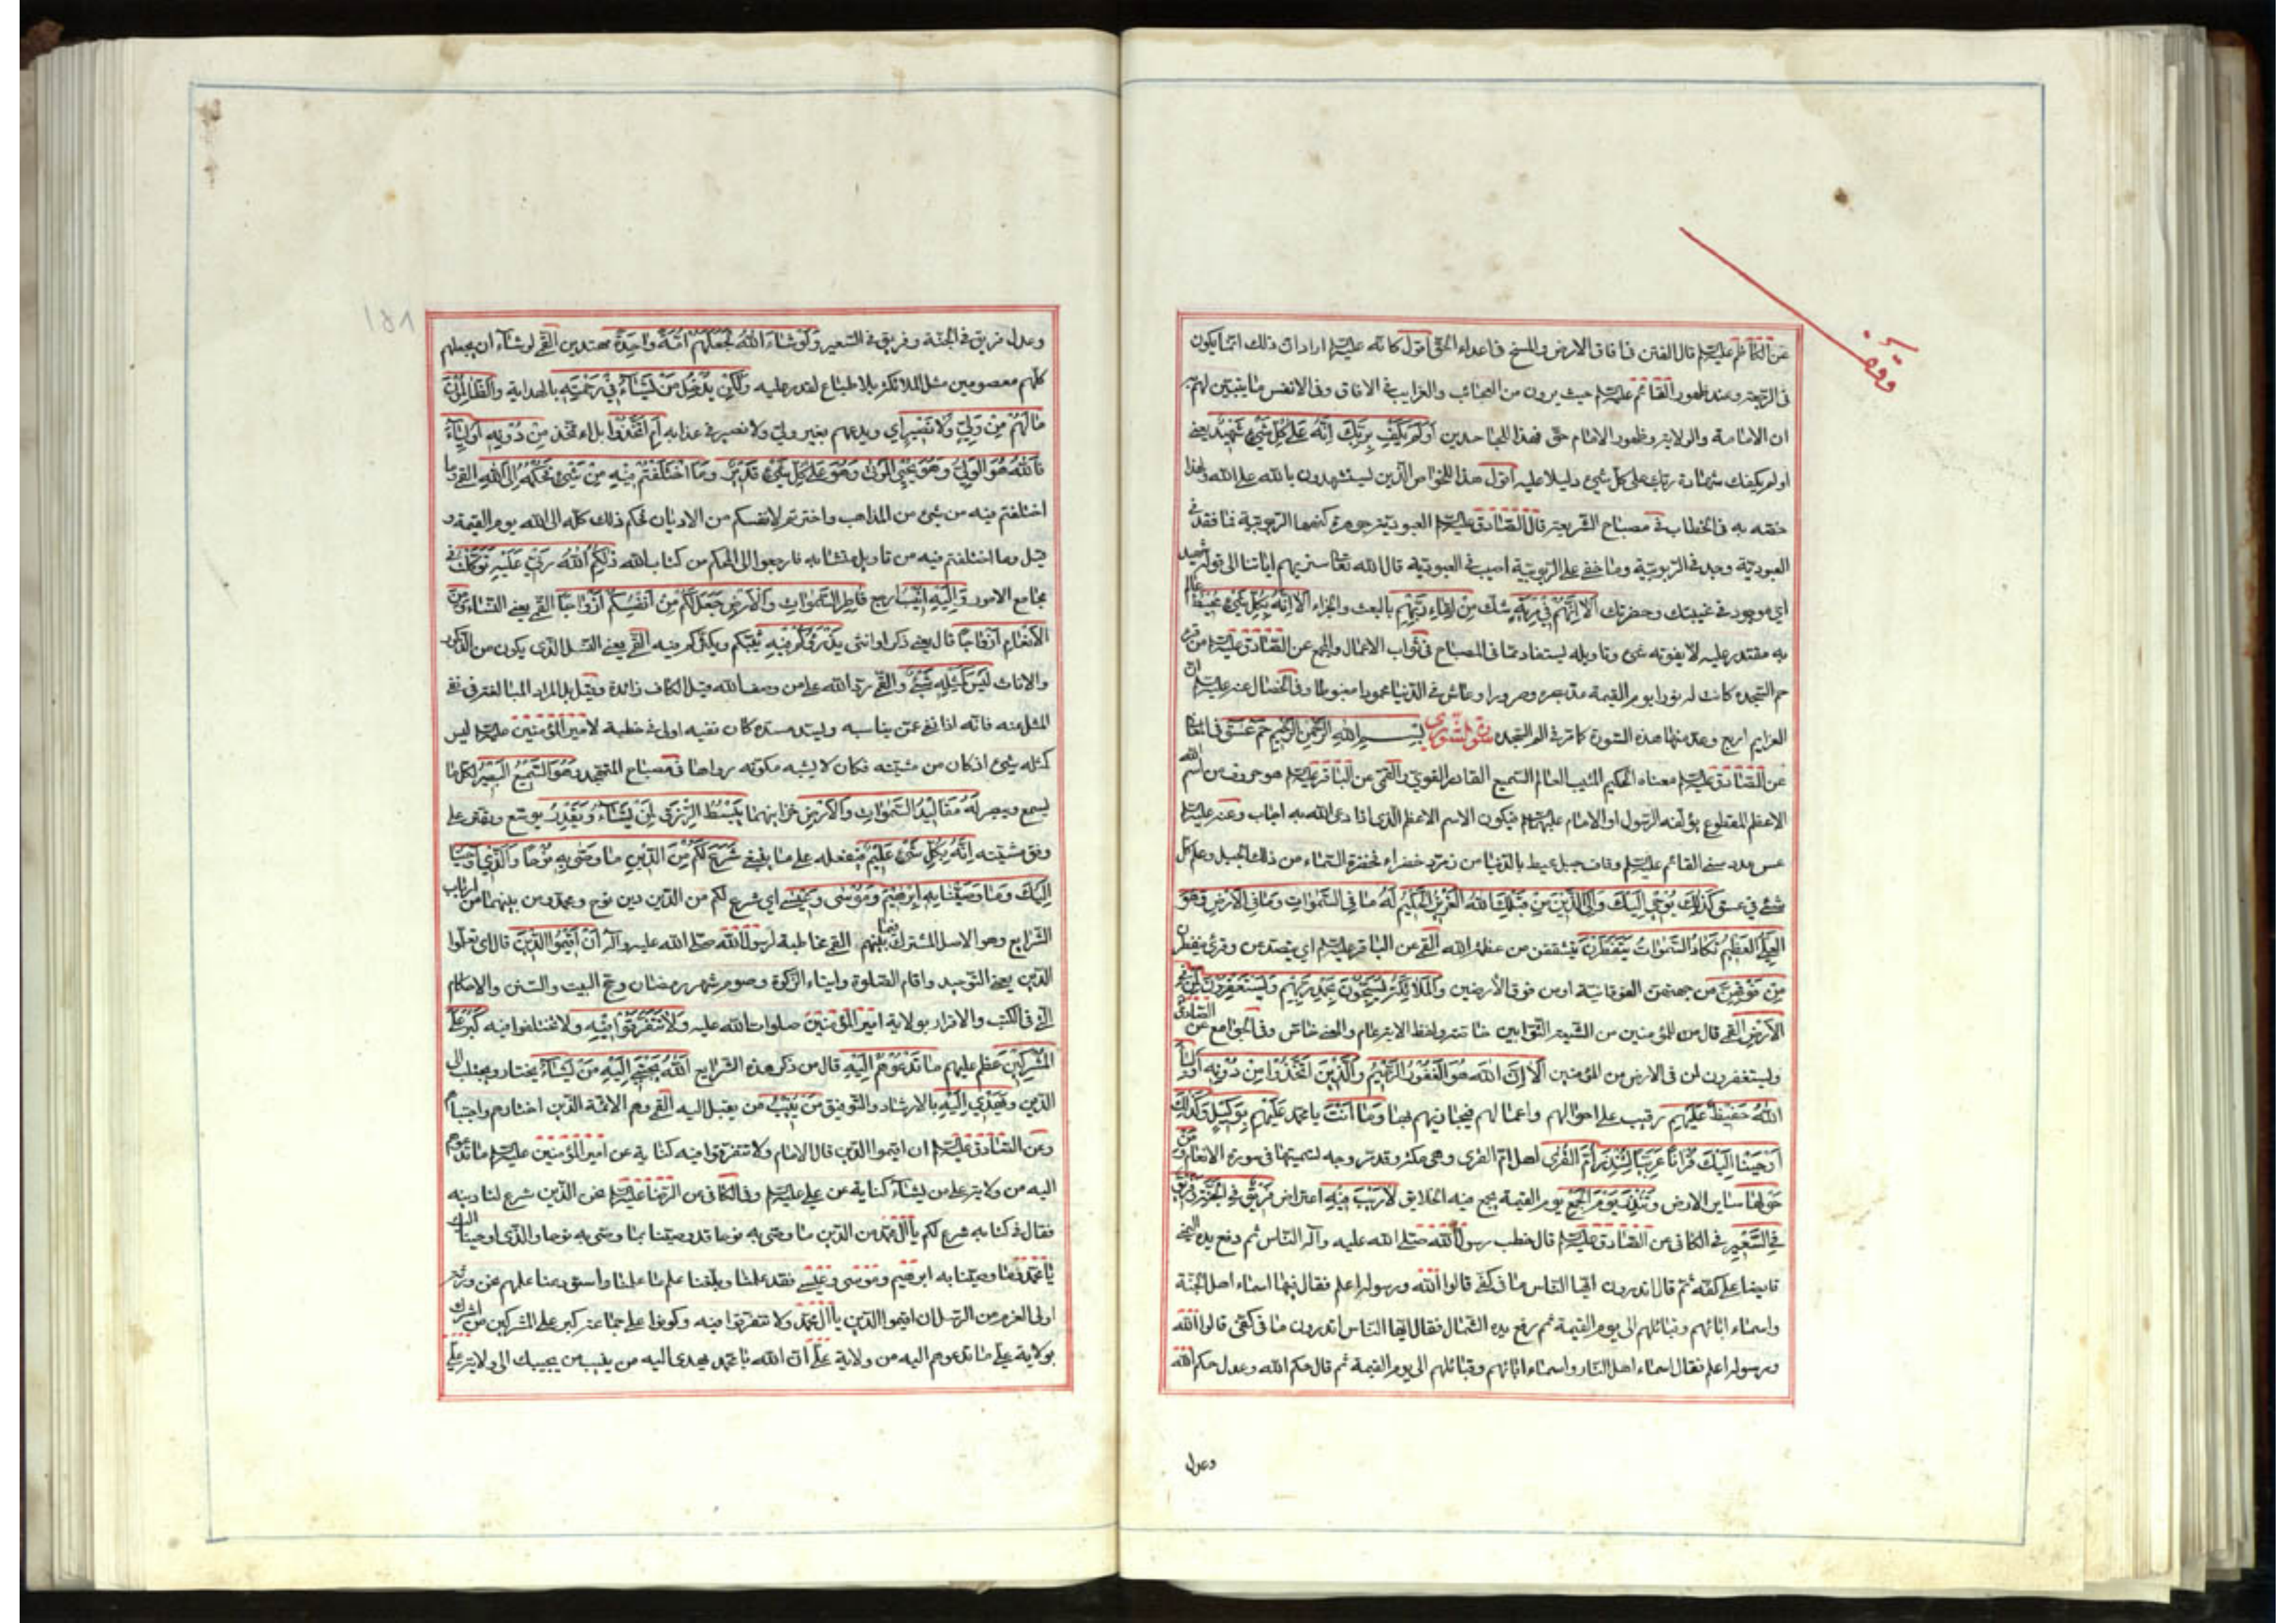 وقف
عن الكاظم عليه السلام قال الفتن في افاق الارض والمسخ في اعداء الحق اقول كانه عليه السلام اراد ان ذلك انما يكون
في الرجعة وعند ظهور القائم عليه السلام حيث يرون من العجائب والغرايب في الافاق وفي الانفس ما يتبين لهم به
ان الامامة والولاية وظهور الامام حق فهذا للجاحدين أَوَلَمْ يَكْفِ بِرَبِّكَ أَنَّهُ عَلَى كُلِّ شَيْءٍ شَهِيدٌ يعني
اولم يكفك شهادة ربك على كل شيء دليلا عليه اقول هذا للخواص الذين يستشهدون بالله على الله ولهذا
خصه به في الخطاب في مصباح الشريعة قال الصادق عليه السلام العبودية جوهرة كنهها الربوبية فما فقد في
العبودية وجد في الربوبية وما خفي على الربوبية اصيب في العبودية قال الله تعا سنريهم اياتنا الى قوله شهيد
اي موجود في غيبتك وحضرتك أَلَا إِنَّهُمْ فِي مِرْيَةٍ شك مِنْ لِقَاءِ رَبِّهِمْ بالبعث والجزاء أَلَا إِنَّهُ بِكُلِّ شَيْءٍ مُحِيطٌ عالم
به مقتدر عليه لا يفوته شيء وتاويله يستفاد مما في المصباح في ثواب الاعمال والمجمع عن الصادق عليه السلام من قرء
حم السجدة كانت له نورا يوم القيمة مد بصره وسرورا وعاش في الدنيا محمودا مغبوطا وفي الخصال عنه عليه السلام ان
العزايم اربع وعد منها هذه السورة كما مر في الم السجدة سورة الشورى بِسْمِ اللهِ الرَّحْمٰنِ الرَّحِيمِ حم عسق في المعاني
عن الصادق عليه السلام معناه الحكيم المثيب العالم السميع القادر القوي والقمي عن الباقر عليه السلام هو حروف من اسم الله
الاعظم المقطوع يؤلفه الرسول او الامام عليهما السلام فيكون الاسم الاعظم الذي اذا دعى الله به اجاب وعنه عليه السلام
عسق عدد سني القائم عليه السلام وقاف جبل محيط بالدنيا من زمرد خضراء فخضرة السماء من ذلك الجبل وعلم كل
شيء في عسق كَذٰلِكَ يُوحِي إِلَيْكَ وَإِلَى الَّذِينَ مِنْ قَبْلِكَ اللهُ الْعَزِيزُ الْحَكِيمُ لَهُ مَا فِي السَّمٰوَاتِ وَمَا فِي الْأَرْضِ وَهُوَ
الْعَلِيُّ الْعَظِيمُ تَكَادُ السَّمٰوَاتُ يَتَفَطَّرْنَ يتشققن من عظمة الله القمي عن الباقر عليه السلام اي يتصدعن وقرئ ينفطرن
مِنْ فَوْقِهِنَّ من جهتهن الفوقانية او من فوق الأرضين وَالْمَلَائِكَةُ يُسَبِّحُونَ بِحَمْدِ رَبِّهِمْ وَيَسْتَغْفِرُونَ لِمَنْ فِي
الْأَرْضِ القمي قال من للمؤمنين من الشيعة التوابين خاصة ولفظ الاية عام والمعنى خاص وفي الجوامع عن الصادق
ويستغفرون لمن في الارض من المؤمنين أَلَا إِنَّ اللهَ هُوَ الْغَفُورُ الرَّحِيمُ وَالَّذِينَ اتَّخَذُوا مِنْ دُونِهِ أَوْلِيَاءَ
اللهُ حَفِيظٌ عَلَيْهِمْ رقيب على احوالهم واعمالهم فيجازيهم بها وَمَا أَنْتَ يا محمد عَلَيْهِمْ بِوَكِيلٍ وَكَذٰلِكَ
أَوْحَيْنَا إِلَيْكَ قُرْآنًا عَرَبِيًّا لِتُنْذِرَ أُمَّ الْقُرَى اهل ام القرى وهي مكة وقد مر وجه تسميتها في سورة الانعام وَمَنْ
حَوْلَهَا ساير الارض وَتُنْذِرَ يَوْمَ الْجَمْعِ يوم القيمة يجمع فيه الخلايق لَا رَيْبَ فِيهِ اعتراض فَرِيقٌ فِي الْجَنَّةِ وَفَرِيقٌ
فِي السَّعِيرِ في الكافي عن الصادق عليه السلام قال خطب رسول الله صلى الله عليه وآله الناس ثم رفع يده اليمنى
قابضا على كفه ثم قال اتدرون ايها الناس ما في كفي قالوا الله ورسوله اعلم فقال فيها اسماء اهل الجنة
واسماء ابائهم وقبائلهم الى يوم القيمة ثم رفع يده الشمال فقال ايها الناس اتدرون ما في كفي قالوا الله
ورسوله اعلم فقال اسماء اهل النار واسماء ابائهم وقبائلهم الى يوم القيمة ثم قال حكم الله وعدل حكم الله
وعدل
١٥١
وعدل فريق في الجنة وفريق في السعير وَلَوْ شَاءَ اللهُ لَجَعَلَهُمْ أُمَّةً وَاحِدَةً مهتدين القمي لو شاء ان يجعلهم
كلهم معصومين مثل الملائكة بلا طباع لقدر عليه وَلٰكِنْ يُدْخِلُ مَنْ يَشَاءُ فِي رَحْمَتِهِ بالهداية وَالظَّالِمُونَ
مَا لَهُمْ مِنْ وَلِيٍّ وَلَا نَصِيرٍ اي ويدعهم بغير ولي ولا نصير في عذابه أَمِ اتَّخَذُوا بل اتخذ مِنْ دُونِهِ أَوْلِيَاءَ
فَاللهُ هُوَ الْوَلِيُّ وَهُوَ يُحْيِي الْمَوْتٰى وَهُوَ عَلَى كُلِّ شَيْءٍ قَدِيرٌ وَمَا اخْتَلَفْتُمْ فِيهِ مِنْ شَيْءٍ فَحُكْمُهُ إِلَى اللهِ القمي وما
اختلفتم فيه من شيء من المذاهب واخترتم لانفسكم من الاديان فحكم ذلك كله الى الله يوم القيمة و
قيل وما اختلفتم فيه من تاويل متشابه فارجعوا الى المحكم من كتاب الله ذٰلِكُمُ اللهُ رَبِّي عَلَيْهِ تَوَكَّلْتُ في
مجامع الامور وَإِلَيْهِ أُنِيبُ ارجع فَاطِرُ السَّمٰوَاتِ وَالْأَرْضِ جَعَلَ لَكُمْ مِنْ أَنْفُسِكُمْ أَزْوَاجًا القمي يعني النساء وَمِنَ
الْأَنْعَامِ أَزْوَاجًا قال يعني ذكرا وانثى يَذْرَؤُكُمْ فِيهِ يبثكم ويكثركم فيه القمي يعني النسل الذي يكون من الذكور
والاناث لَيْسَ كَمِثْلِهِ شَيْءٌ والقمي رد الله على من وصف الله قيل الكاف زائدة وقيل بل المراد المبالغة في نفي
المثل عنه فانه اذا نفي عمن يناسبه ويسد مسده كان نفيه اولى في خطبة لامير المؤمنين عليه السلام ليس
كمثله شيء اذ كان من مشيته فكان لا يشبه مكونه رواها في مصباح المتهجد وَهُوَ السَّمِيعُ الْبَصِيرُ لكل ما
يسمع ويبصر لَهُ مَقَالِيدُ السَّمٰوَاتِ وَالْأَرْضِ خزاينهما يَبْسُطُ الرِّزْقَ لِمَنْ يَشَاءُ وَيَقْدِرُ يوسع ويقتر على
وفق مشيته إِنَّهُ بِكُلِّ شَيْءٍ عَلِيمٌ فيفعله على ما ينبغي شَرَعَ لَكُمْ مِنَ الدِّينِ مَا وَصَّى بِهِ نُوحًا وَالَّذِي أَوْحَيْنَا
إِلَيْكَ وَمَا وَصَّيْنَا بِهِ إِبْرٰهِيمَ وَمُوسٰى وَعِيسٰى اي شرع لكم من الدين دين نوح ومحمد ومن بينهما من ارباب
الشرايع وهو الاصل المشترك فيما بينهم القمي مخاطبة لرسول الله صلى الله عليه وآله أَنْ أَقِيمُوا الدِّينَ قال اي تعلموا
الدين يعني التوحيد واقام الصلوة وايتاء الزكوة وصوم شهر رمضان وحج البيت والسنن والاحكام
التي في الكتب والاقرار بولاية امير المؤمنين صلوات الله عليه وَلَا تَتَفَرَّقُوا فِيهِ ولا تختلفوا فيه كَبُرَ عَلَى
الْمُشْرِكِينَ عظم عليهم مَا تَدْعُوهُمْ إِلَيْهِ قال من ذكر هذه الشرايع اَللهُ يَجْتَبِي إِلَيْهِ مَنْ يَشَاءُ يختار ويجتلب الى
الدين وَيَهْدِي إِلَيْهِ بالارشاد والتوفيق مَنْ يُنِيبُ من يقبل اليه القمي وهم الائمة الذين اختارهم واجتباهم
وعن الصادق عليه السلام ان اقيموا الدين قال الامام ولا تتفرقوا فيه كناية عن امير المؤمنين عليه السلام ما تدعوهم
اليه من ولاية علي من يشاء كناية عن علي عليه السلام وفي الكافي عن الرضا عليه السلام نحن الذين شرع لنا دينه
فقال في كتابه شرع لكم يا آل محمد من الدين ما وصى به نوحا قد وصينا بما وصى به نوحا والذي اوحينا اليك
يا محمد وما وصينا به ابرهيم وموسى وعيسى فقد علمنا وبلغنا علم ما علمنا واستودعنا علمهم نحن ورثة
اولى العزم من الرسل ان اقيموا الدين يا آل محمد ولا تتفرقوا فيه وكونوا على جماعة كبر على المشركين من اشرك
بولاية علي ما تدعوهم اليه من ولاية علي ان الله يا محمد يهدي اليه من ينيب من يجيبك الى ولاية علي